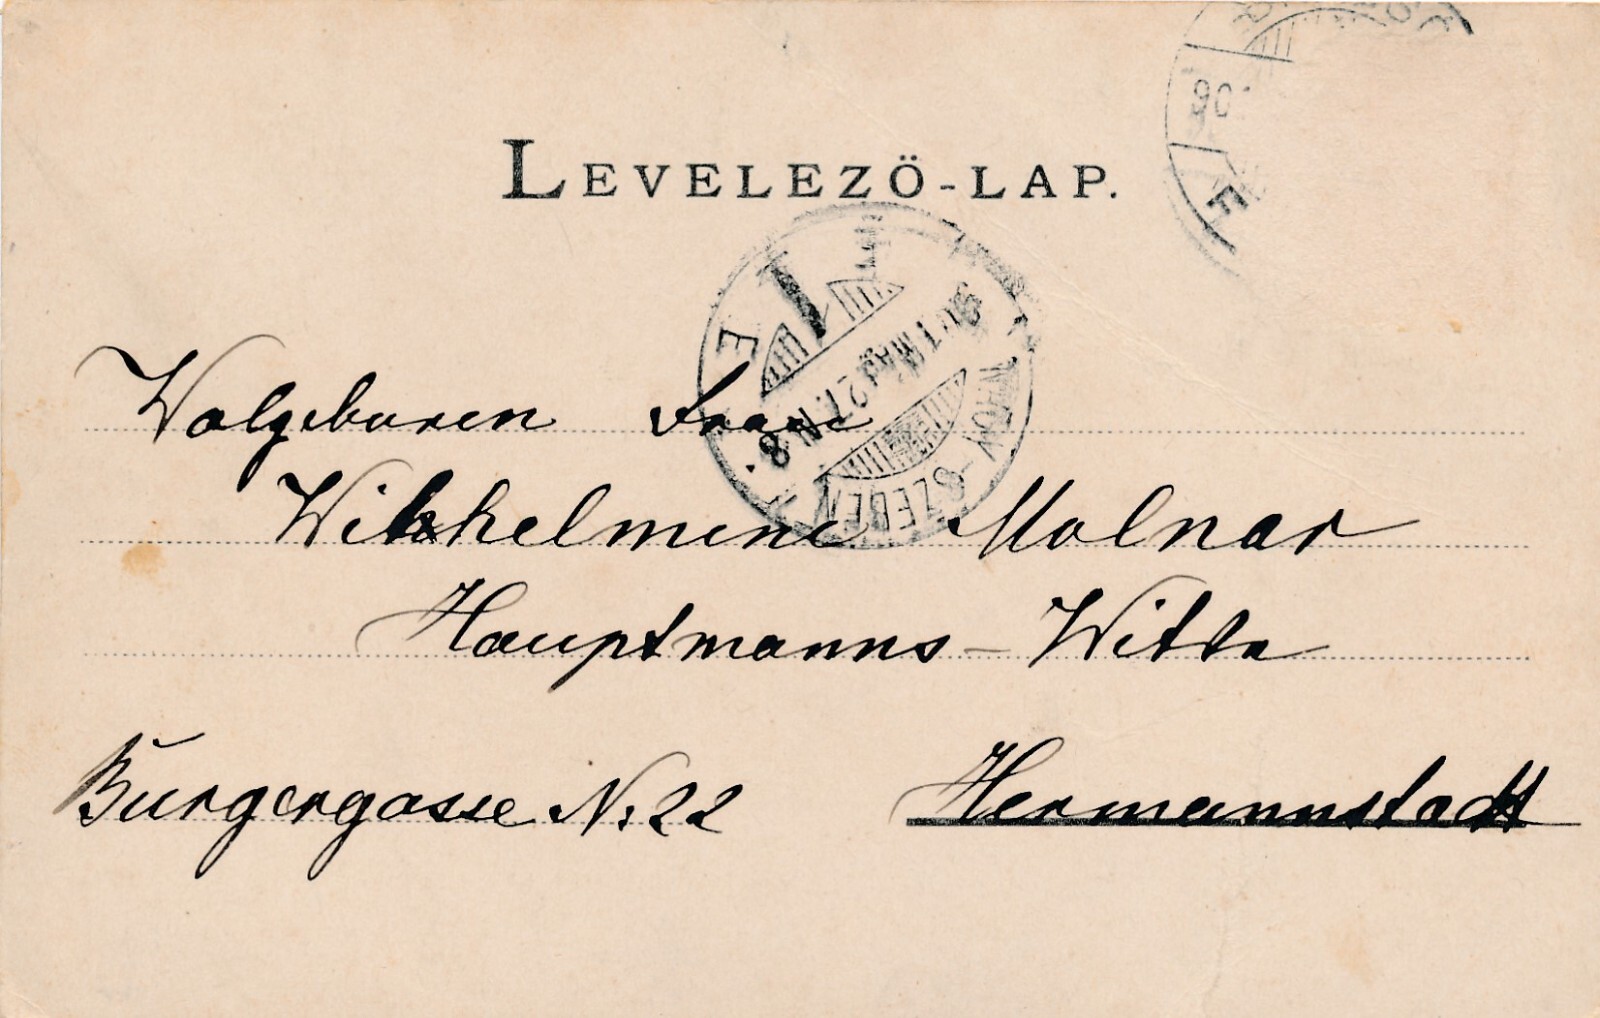 LEVELEZŐ-LAP.
E
901 MÁJ 27. N.8.
-SZEBEN
906
F
Wolgeboren Frau
Wilhelmene Molnar
Hauptmanns - Wittw
Burgergasse N: 22
Hermannstadt